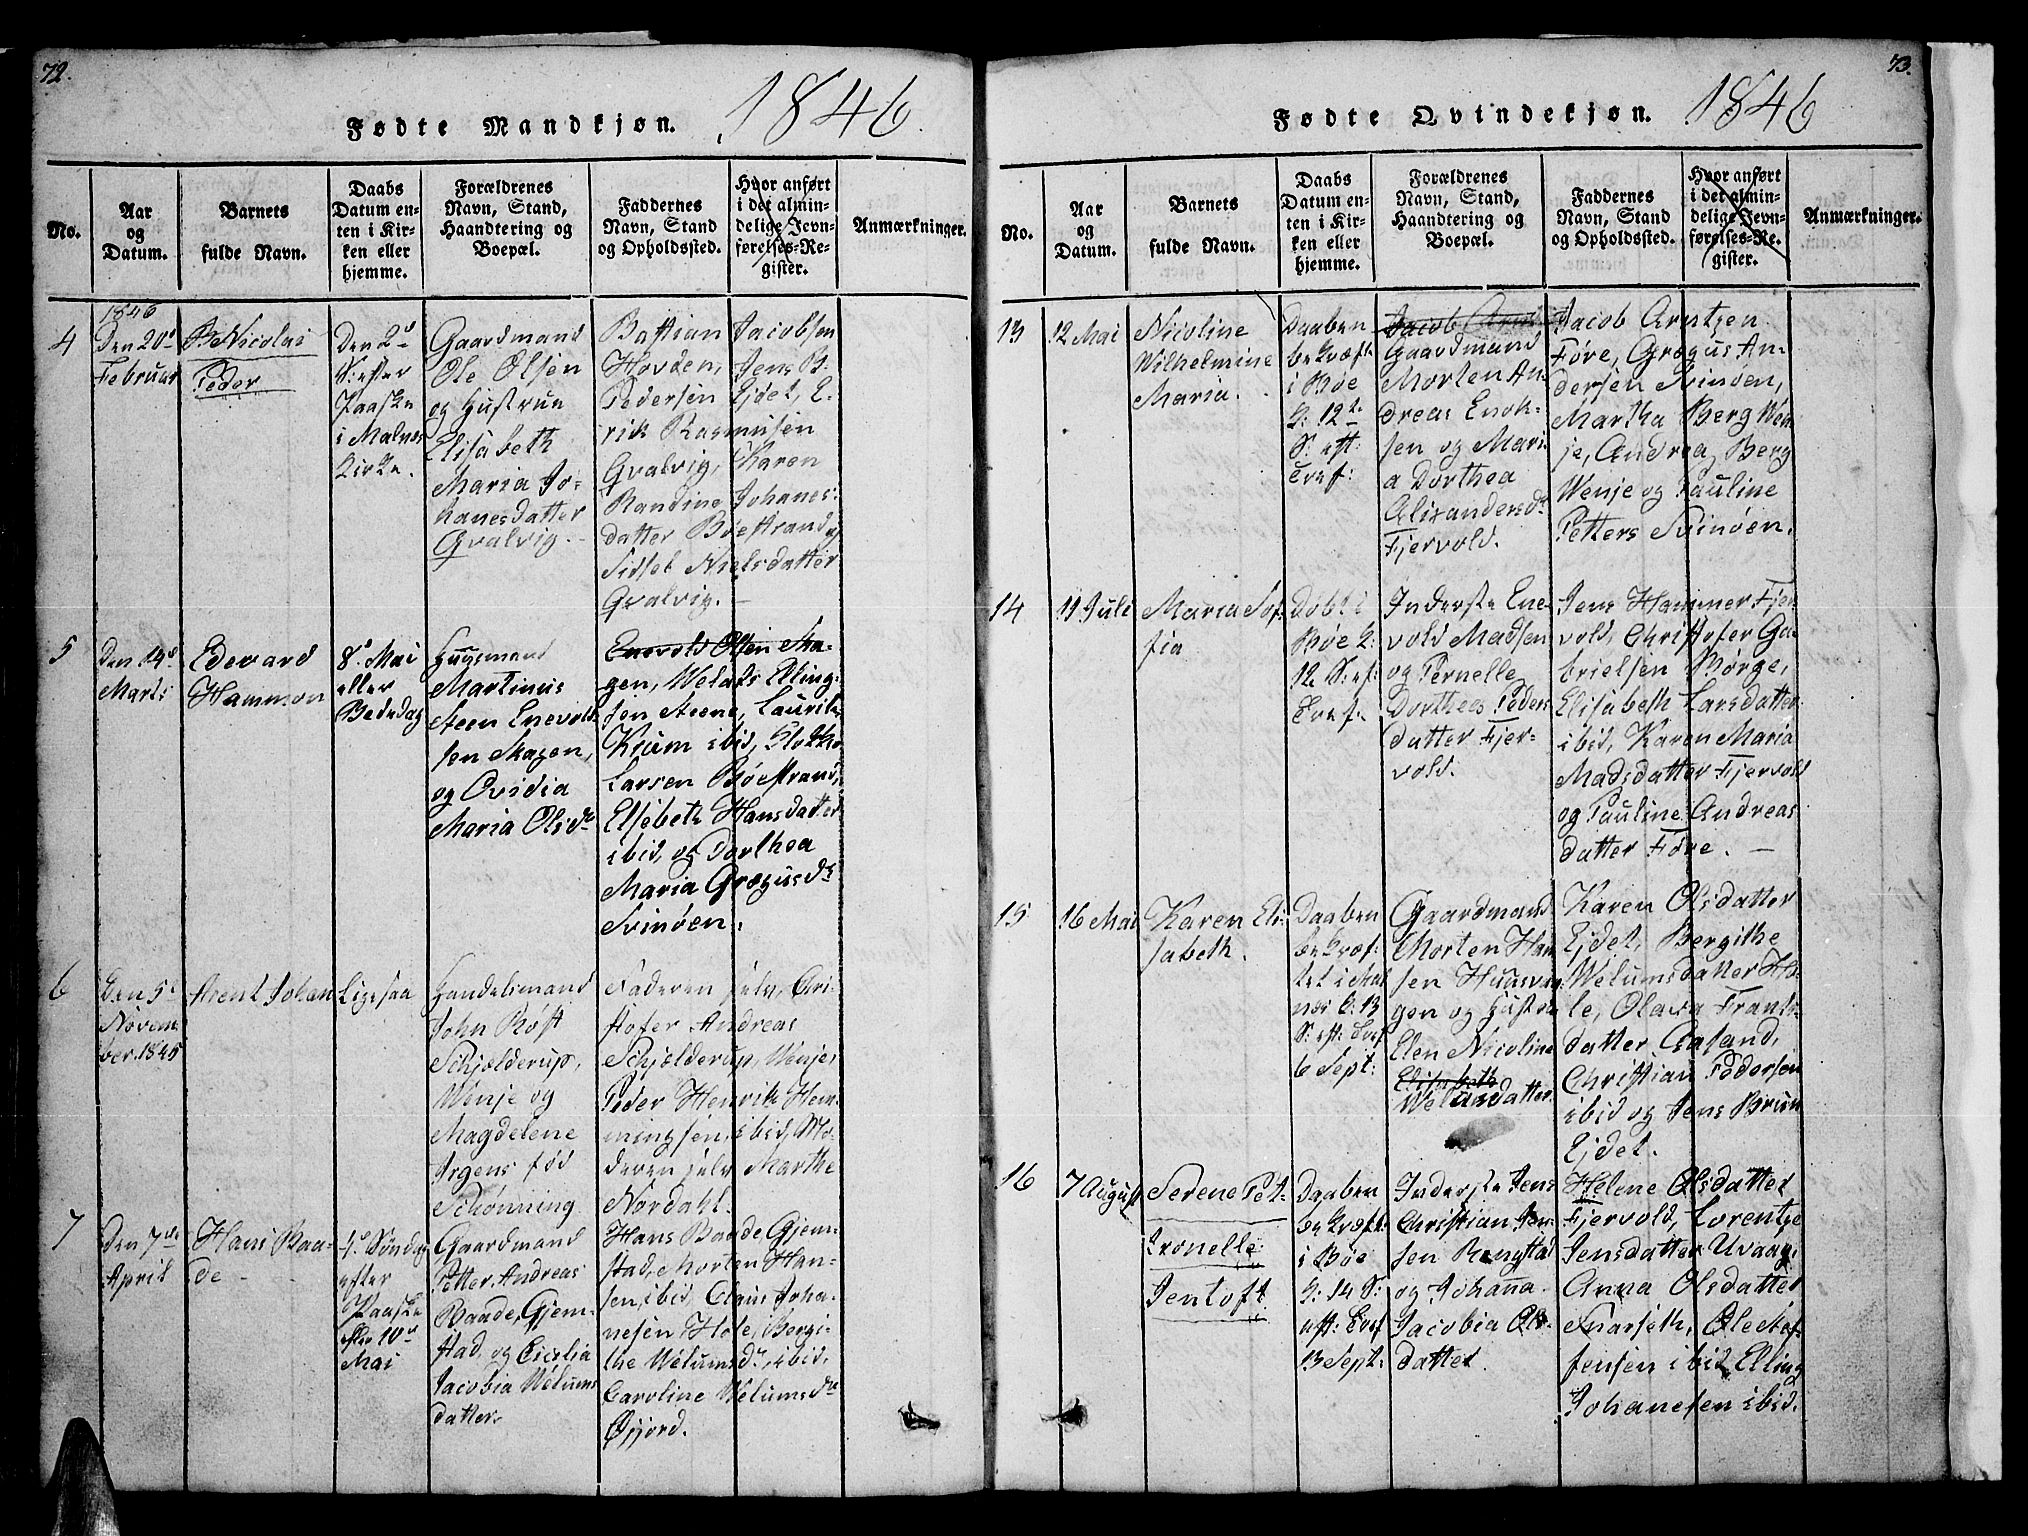 72.
Fødte Mandkjøn. 1846.
No.
Aar
og
Datum.
Barnets
fulde Navn.
Daabs
Datum en-
ten i Kir-
ken eller
hjemme.
Forældrenes
Navn, Stand,
Haandtering og
Boepæl.
Faddernes
Navn, Stand
og Opholdssted.
Hvor anført
i det almin-
delige Jevn-
førelses-Re-
gister.
Anmærkninger.
4
1846
Den 20d
Februar
Nicolai
Peder
Den 2d
S: efter
Paaske
i Malnes
Kirke.
Gaardmand
Ole Olsen
og Hustrue
Elisabeth
Maria Jo-
hanesdatter
Gvalvig.
Bastian Jacobsen
Hovden, Jens B.
Pedersen Ejdet, E-
rik Rasmusen
Gvalvig, Karen
Randine Johanes-
datter Bøestrand og
Sidsel Nielsdatter
Gvalvig. —
5
Den 14d
Marts
Edevard
Hammon
8d Mai
eller
Bededag
Huusmand
Martinus
Steen Enevold-
sen Skagen,
og Ovidia
Maria Olsdr
Enevold Olsen Ska-
gen, Welats Elling-
sen Steene, Laurik
Kium ibid,
Larsen Bøestrand,
Elsebeth Hansdatter
ibid, og Dorthea
Maria Grægusdr
Svinøen.
6
Den 5d
Novem-
ber 1845
Arent Johan
Ligesaa
Handelsmand
John Røst
Schjelderup,
Wenje og
Magdelene
Irgens fød
Schønning
Faderen selv, Cri-
stofer Andreas
Schjelderup, Wenje,
Peder Henrik Hem-
mingsen, ibid, Mo-
deren selv Marthe
Nordahl.
7
Den 7de
April
Hans Baa-
de
4d Søndag
efter
Paaske
eller 10d
Mai
Gaardmand
Petter Andreas
Baade, Gjem-
stad, og Cicilia
Jacobia Welums-
datter
Hans Baade Gjem-
stad, Morten Han-
sen, ibid, Claus Joha-
nesen Hole, Bergi-
the Welumsdr, ibid,
Caroline Welumsdr
Øjjord.
73.
Fødte Qvindekjøn. 1846
No.
Aar
og
Datum.
Barnets
fulde Navn.
Daabs
Datum en-
ten i Kir-
ken eller
hjemme.
Forældrenes
Navn, Stand,
Haandtering og
Boepæl.
Faddernes
Navn, Stand
og Opholdssted.
Hvor anført
i det almin-
delige Jevn-
førelses-Re-
gister.
Anmærkninger.
13
12 Mai
Nicoline
Wilhelmine
Maria.
Daaben
bekræft:
i Bøe
S: 12te
S: eft:
Tref:
Jacob Arnt
Gaardmand
Morten An-
dreas Enok-
sen og Mari-
a Dorthea
Alixandersdr
Fjervold.
Jacob Arntzen
Føre, Grægus An-
dersen Svinøen,
Martha Berg Wen-
je, Andrea Berg
Wenje og Pauline
Petters Svinøen.
14
11 Juli
Maria So-
fia
Døbt i
Bøe S:
12 S: ef:
Tref:
Inderste Ene-
vold Madsen
og Pernelle
Dorthea Peders
datter Fjer-
vold.
Jens Hammer Fjer-
vold, Christofer Ga-
brielsen Børge,
Elisabeth Larsdatter
ibid, Karen Maria
Madsdatter Fjervold
og Pauline Andreas
datter Føre. —
15
16 Mai
Karen Eli-
sabeth.
Daaben
bekræf-
tet i Mal
nes S: 13
S: eft: Tref
6 Sept:
Gaardmand
Morten Han
sen Huusvaa
gen og Hustru
Elen Nicoline
Elisabeth
Welumsdatter.
Karen Olsdatter
Ejdet, Bergithe
Welumsdatter Ho-
le, Olava Frants-
datter Gasand,
Christian Pedersen
ibid og Jens Bruun
Ejdet.
16
7 August
Serene Pet-
tronelle
Jentoft
Daaben
bekræft:
i Bøe
S: 14 S:
eft: Tref
13 Sept:
Inderste Jens
Christian Jen-
sen Ringstad
og Johanna
Jacobia Ols-
datter.
Helene Olsdatter
Fjervold, Lorentze
Jensdatter Uvaag,
Anna Olsdatter
Snarseth, Ole Stef-
fensen ibid, Elling
Johanesen ibid.